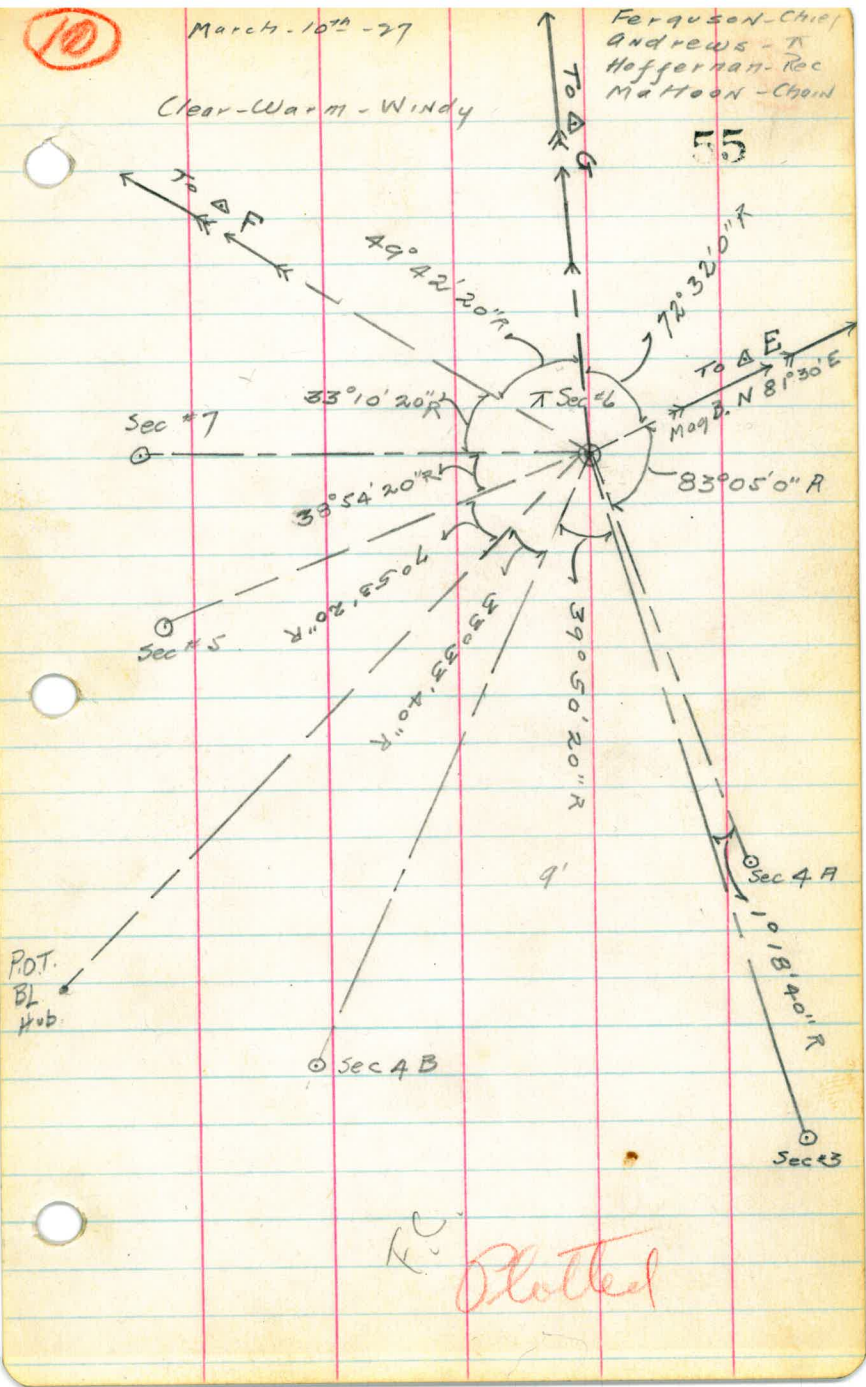 10
March-10th-27
Ferguson-Chief
Andrews-⊼
Heffernan-Rec
Mattoon-Chain
Clear-Warm-Windy
55
To △ G
To △ F
49° 42' 20" R
72° 32' 0" R
To △ E
Mag B. N 81°30'E
33° 10' 20" R
⊼ Sec #6
Sec #7
83° 05' 0" R
38° 54' 20" R
7° 53' 20" R
33° 33' 40" R
39° 50' 20" R
Sec #5
9'
Sec 4 A
1° 18' 40" R
P.O.T.
BL
Hub
Sec 4 B
Sec #3
F.C.
Plotted